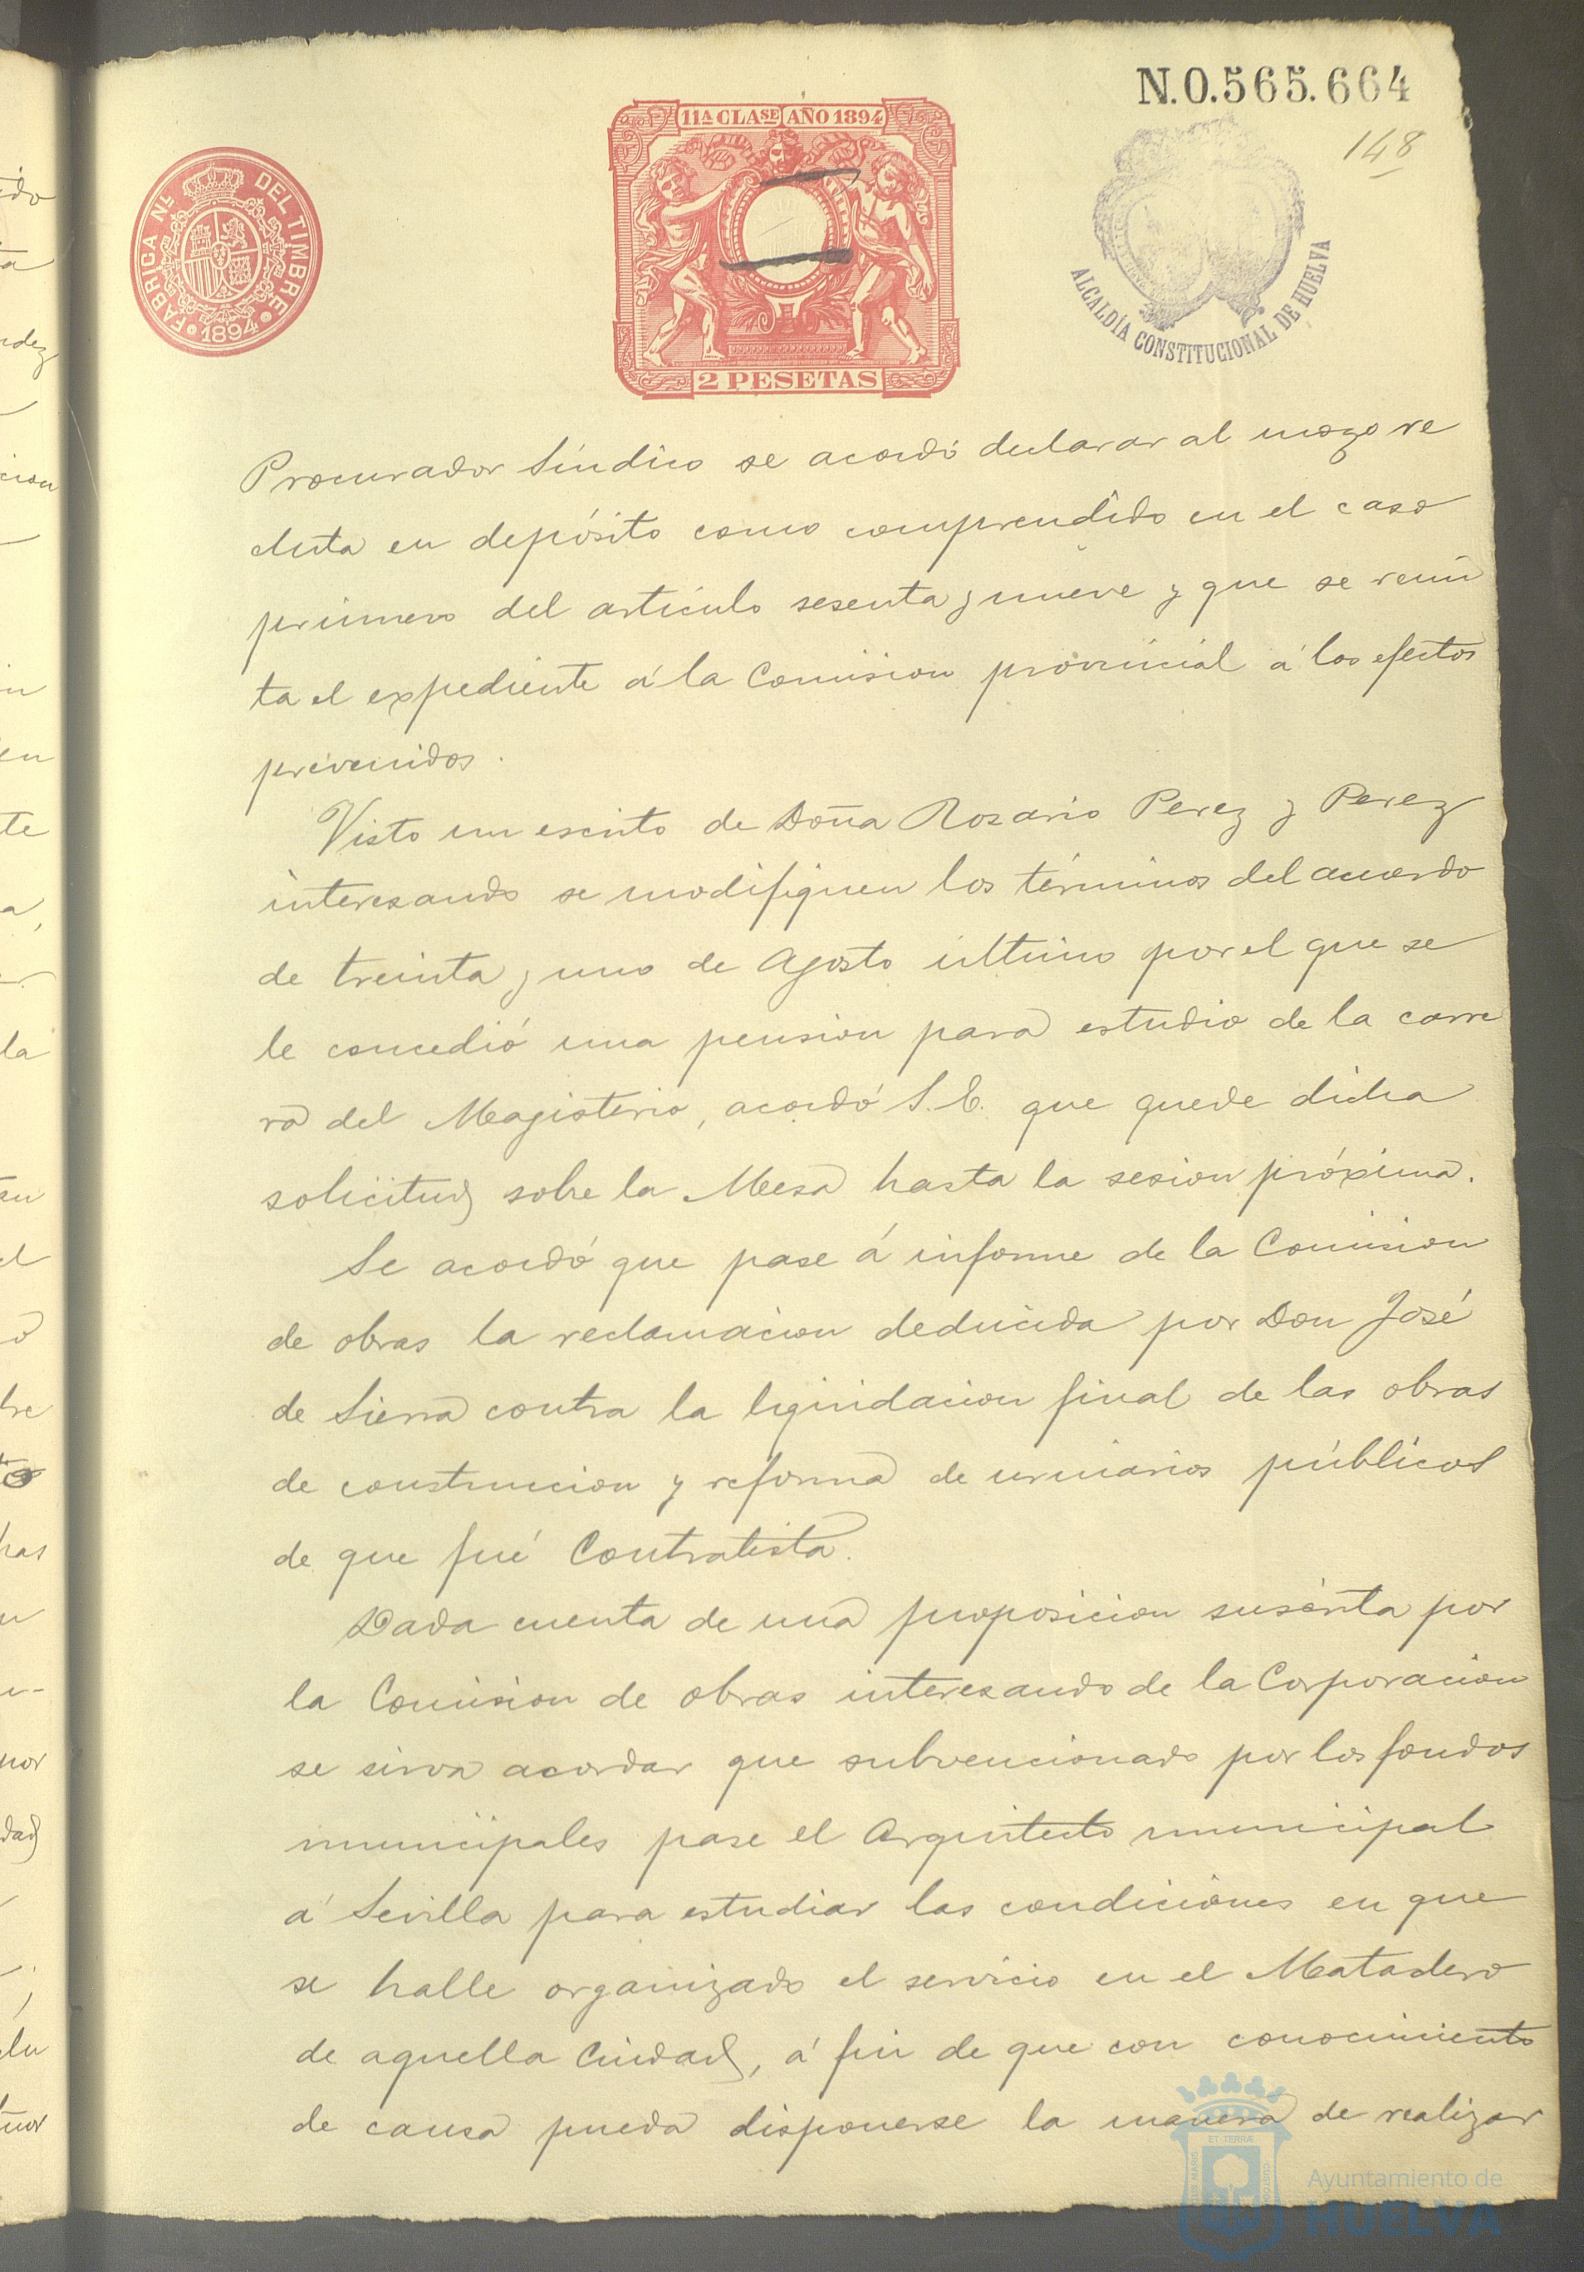 N.0.565.664
148
11ᴬ CLASE AÑO 1894
FABRICA Nᴸ DEL TIMBRE
1894
2 PESETAS
ALCALDÍA CONSTITUCIONAL DE HUELVA
Procurador Síndico se acordó declarar al mozo re
cluta en depósito como comprendido en el caso
primero del artículo sesenta y nueve y que se remi
ta el expediente á la Comision provincial á los efectos
prevenidos.
Visto un escrito de Doña Rosario Perez y Perez
interesando se modifiquen los términos del acuerdo
de treinta y uno de Agosto último por el que se
le concedió una pension para estudio de la carre
ra del Magisterio, acordó S.E. que quede dicha
solicitud sobre la Mesa hasta la sesion próxima.
Se acordó que pase á informe de la Comision
de obras la reclamacion deducida por Don José
de Sierra contra la liquidacion final de las obras
de construccion y reforma de urinarios públicos
de que fué Contratista.
Dada cuenta de una proposicion suscrita por
la Comision de obras interesando de la Corporacion
se sirva acordar que subvencionado por los fondos
municipales pase el Arquitecto municipal
á Sevilla para estudiar las condiciones en que
se halle organizado el servicio en el Matadero
de aquella Ciudad, á fin de que con conocimiento
de causa pueda disponerse la manera de realizar
Ayuntamiento de
HUELVA